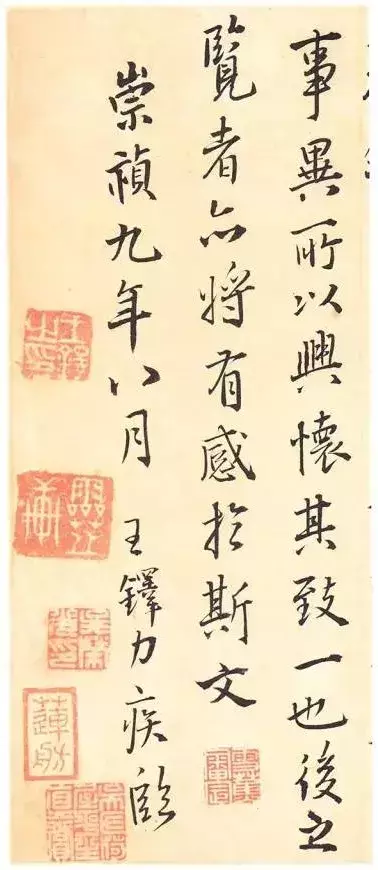 事異所以興懷其致一也後之
覽者亦將有感於斯文
崇禎九年八月 王鐸力疾臨
王鐸之印